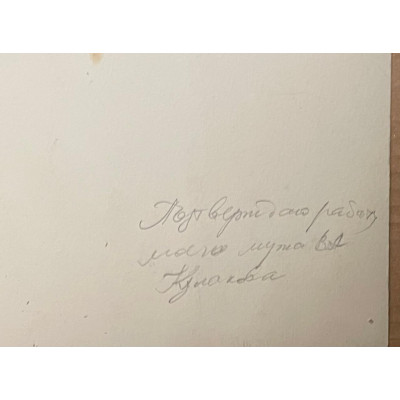 Подтверждаю работу
моего мужа ВА
Кулакова